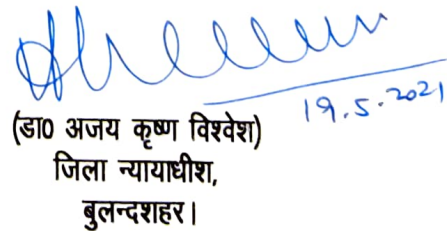 19.5.2021
(डा० अजय कृष्ण विश्वेश)
जिला न्यायाधीश,
बुलन्दशहर।